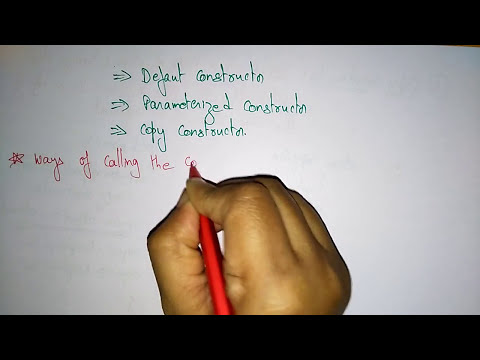 ⇒ Defaut constructor
⇒ Parameterized constructor
⇒ copy constructor.
* ways of calling the co